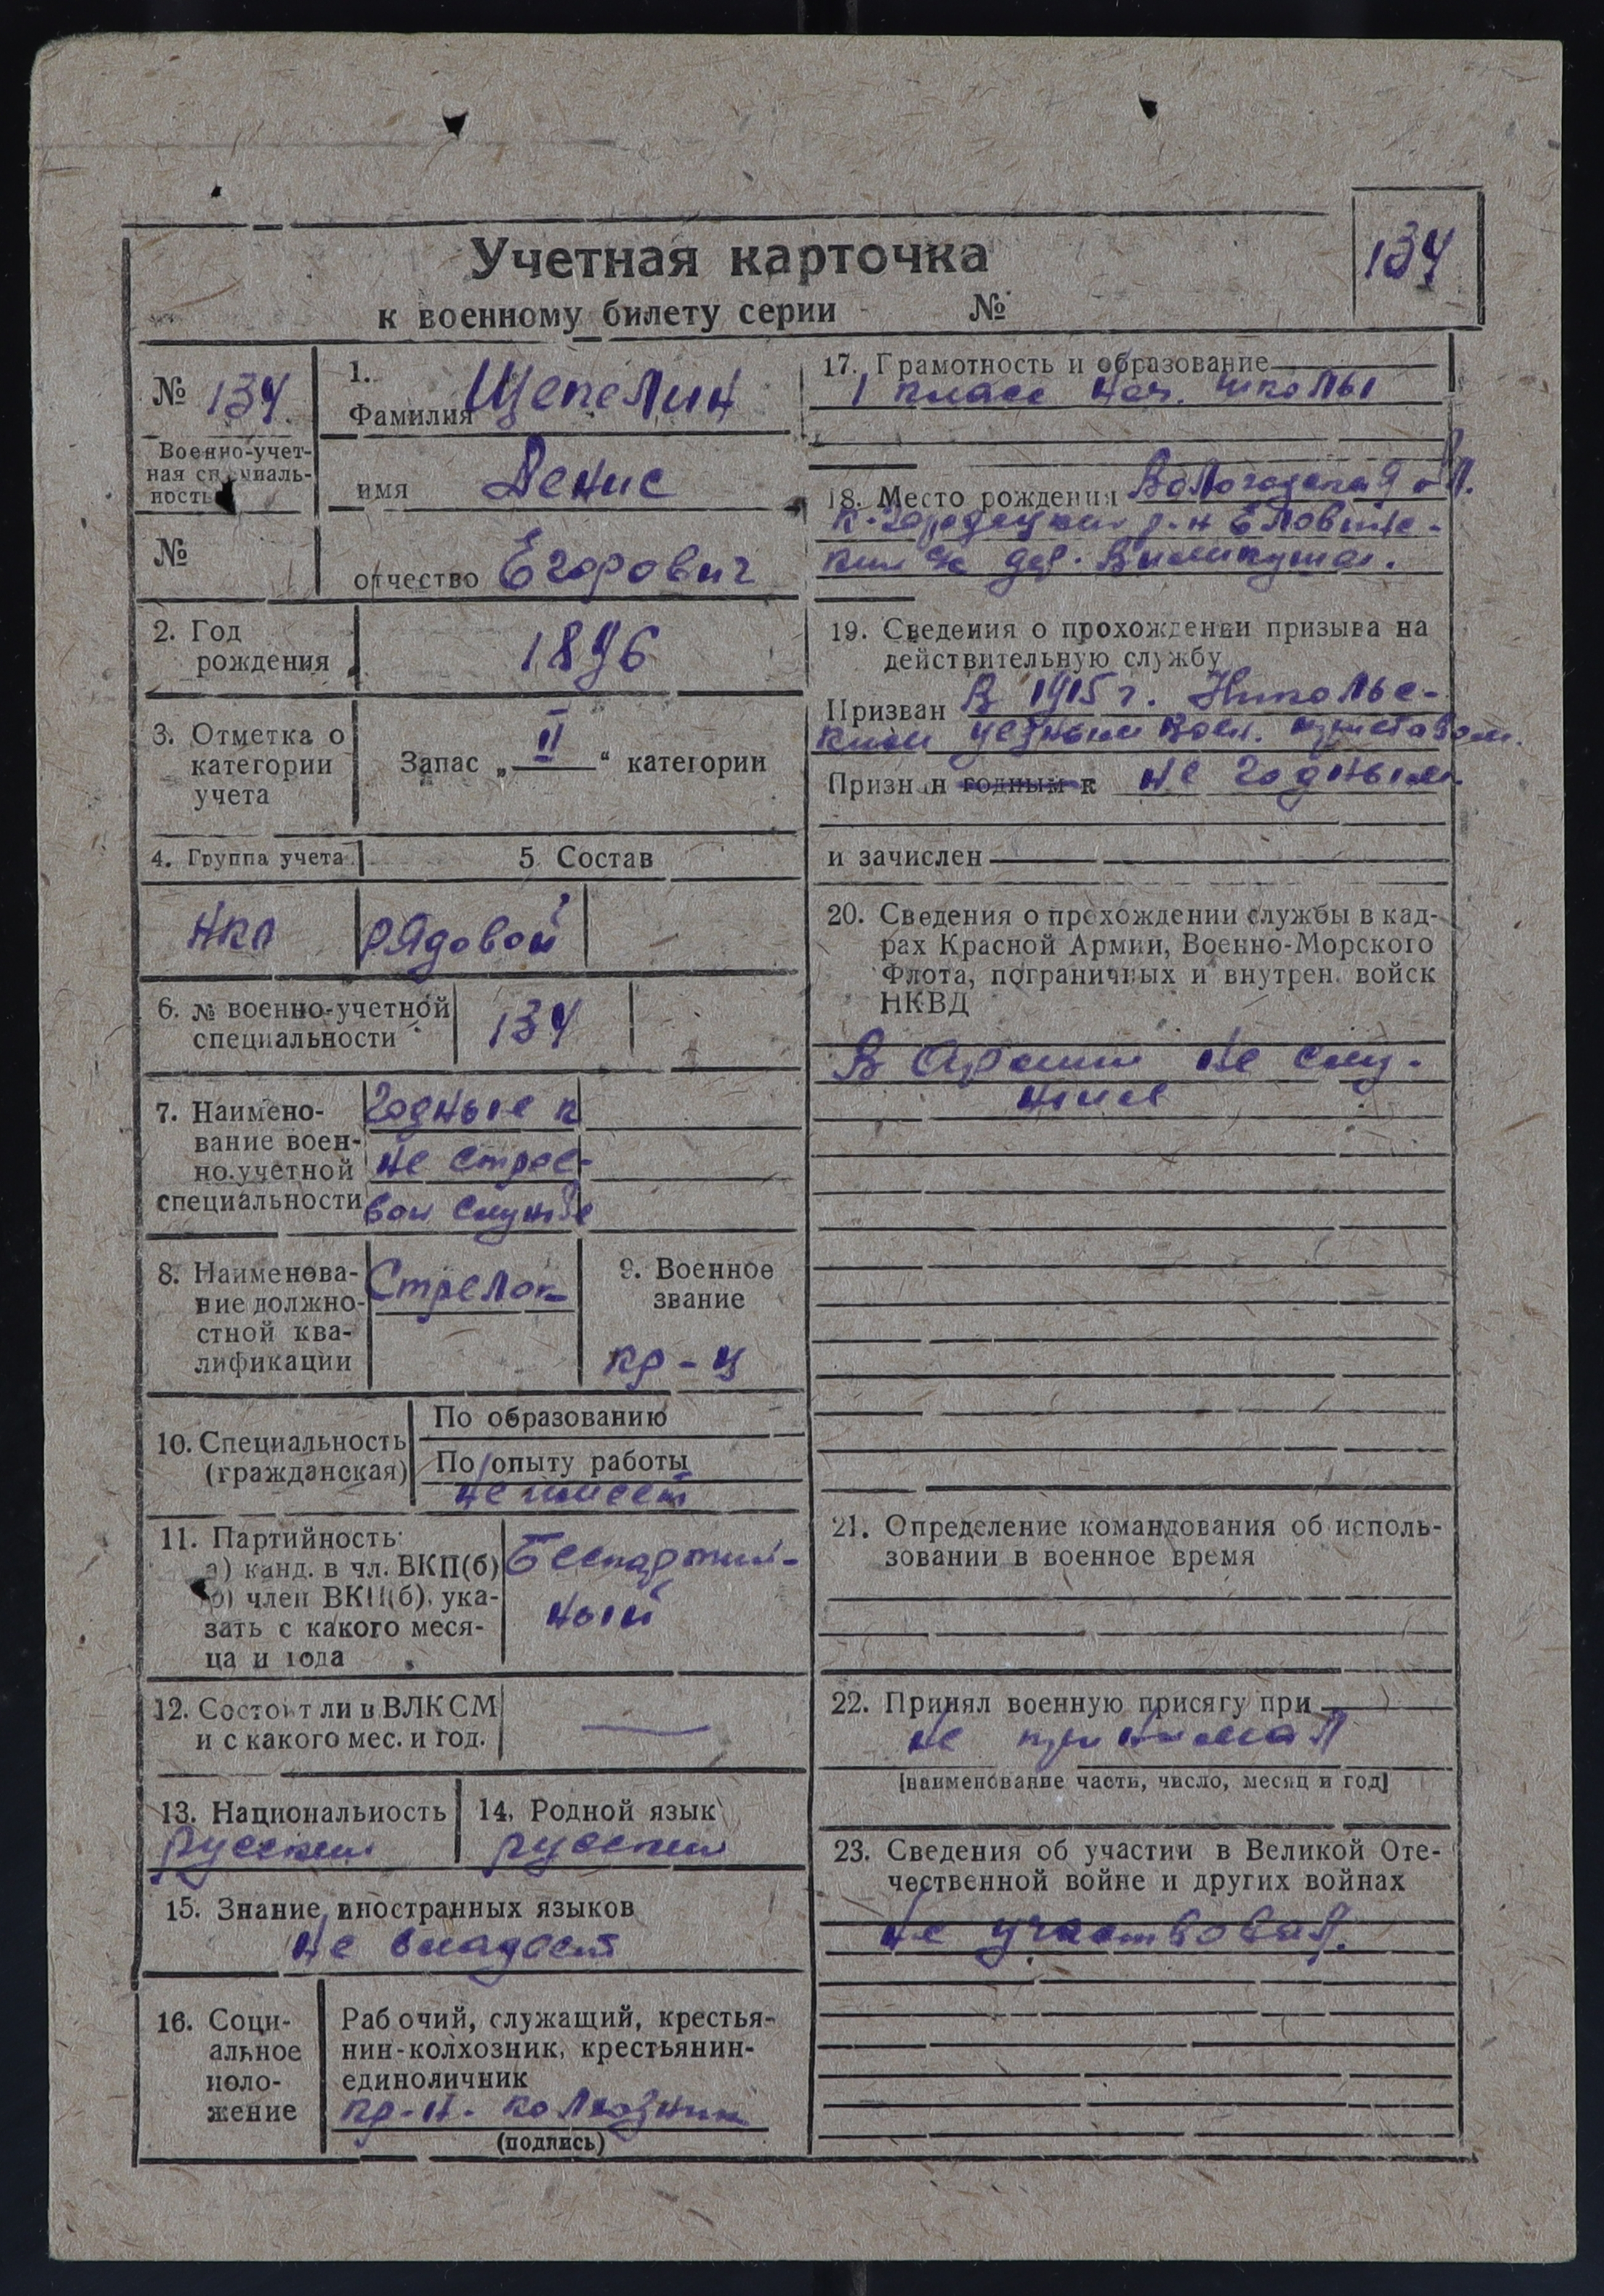 Учетная карточка
к военному билету серии №
134
№ 134
Военно-учет-
ная специаль-
ность
№
1.
Фамилия Щепелин
имя Денис
отчество Егорович
2. Год
рождения
1896
3. Отметка о
категории
учета
Запас „ II “ категории
4. Группа учета
5 Состав
НКП
рядовой
6. № военно-учетной
специальности
134
7. Наимено-
вание воен-
но.учетной
специальности
Годные к
не строе-
вой службе
8. Наименова-
ние должно-
стной ква-
лификации
Стрелок
9. Военное
звание
кр-ц
10. Специальность
(гражданская)
По образованию
По опыту работы
не имеет
11. Партийность:
а) канд. в чл. ВКП(б)
б) член ВКП(б), ука-
зать с какого меся-
ца и года
Беспартий-
ный
12. Состоит ли в ВЛКСМ
и с какого мес. и год.
—
13. Национальность
русский
14. Родной язык
русский
15. Знание иностранных языков
не владеет
16. Соци-
альное
поло-
жение
Рабочий, служащий, крестья-
нин-колхозник, крестьянин-
единоличник
кр-н. колхозник
(подпись)
17. Грамотность и образование
1 класс нач. школы
18. Место рождения Вологодская обл.
К-Городецкий р-н Еловинс-
кий с/с дер.
19. Сведения о прохождении призыва на
действительную службу
Призван В 1915 г. Никольс-
ким уездным воен.
Признан годным к не годным
и зачислен
20. Сведения о прохождении службы в кад-
рах Красной Армии, Военно-Морского
Флота, пограничных и внутрен. войск
НКВД
В Армии не слу-
жил
21. Определение командования об исполь-
зовании в военное время
22. Принял военную присягу при
не принимал
[наименование части, число, месяц и год]
23. Сведения об участии в Великой Оте-
чественной войне и других войнах
Не участвовал.